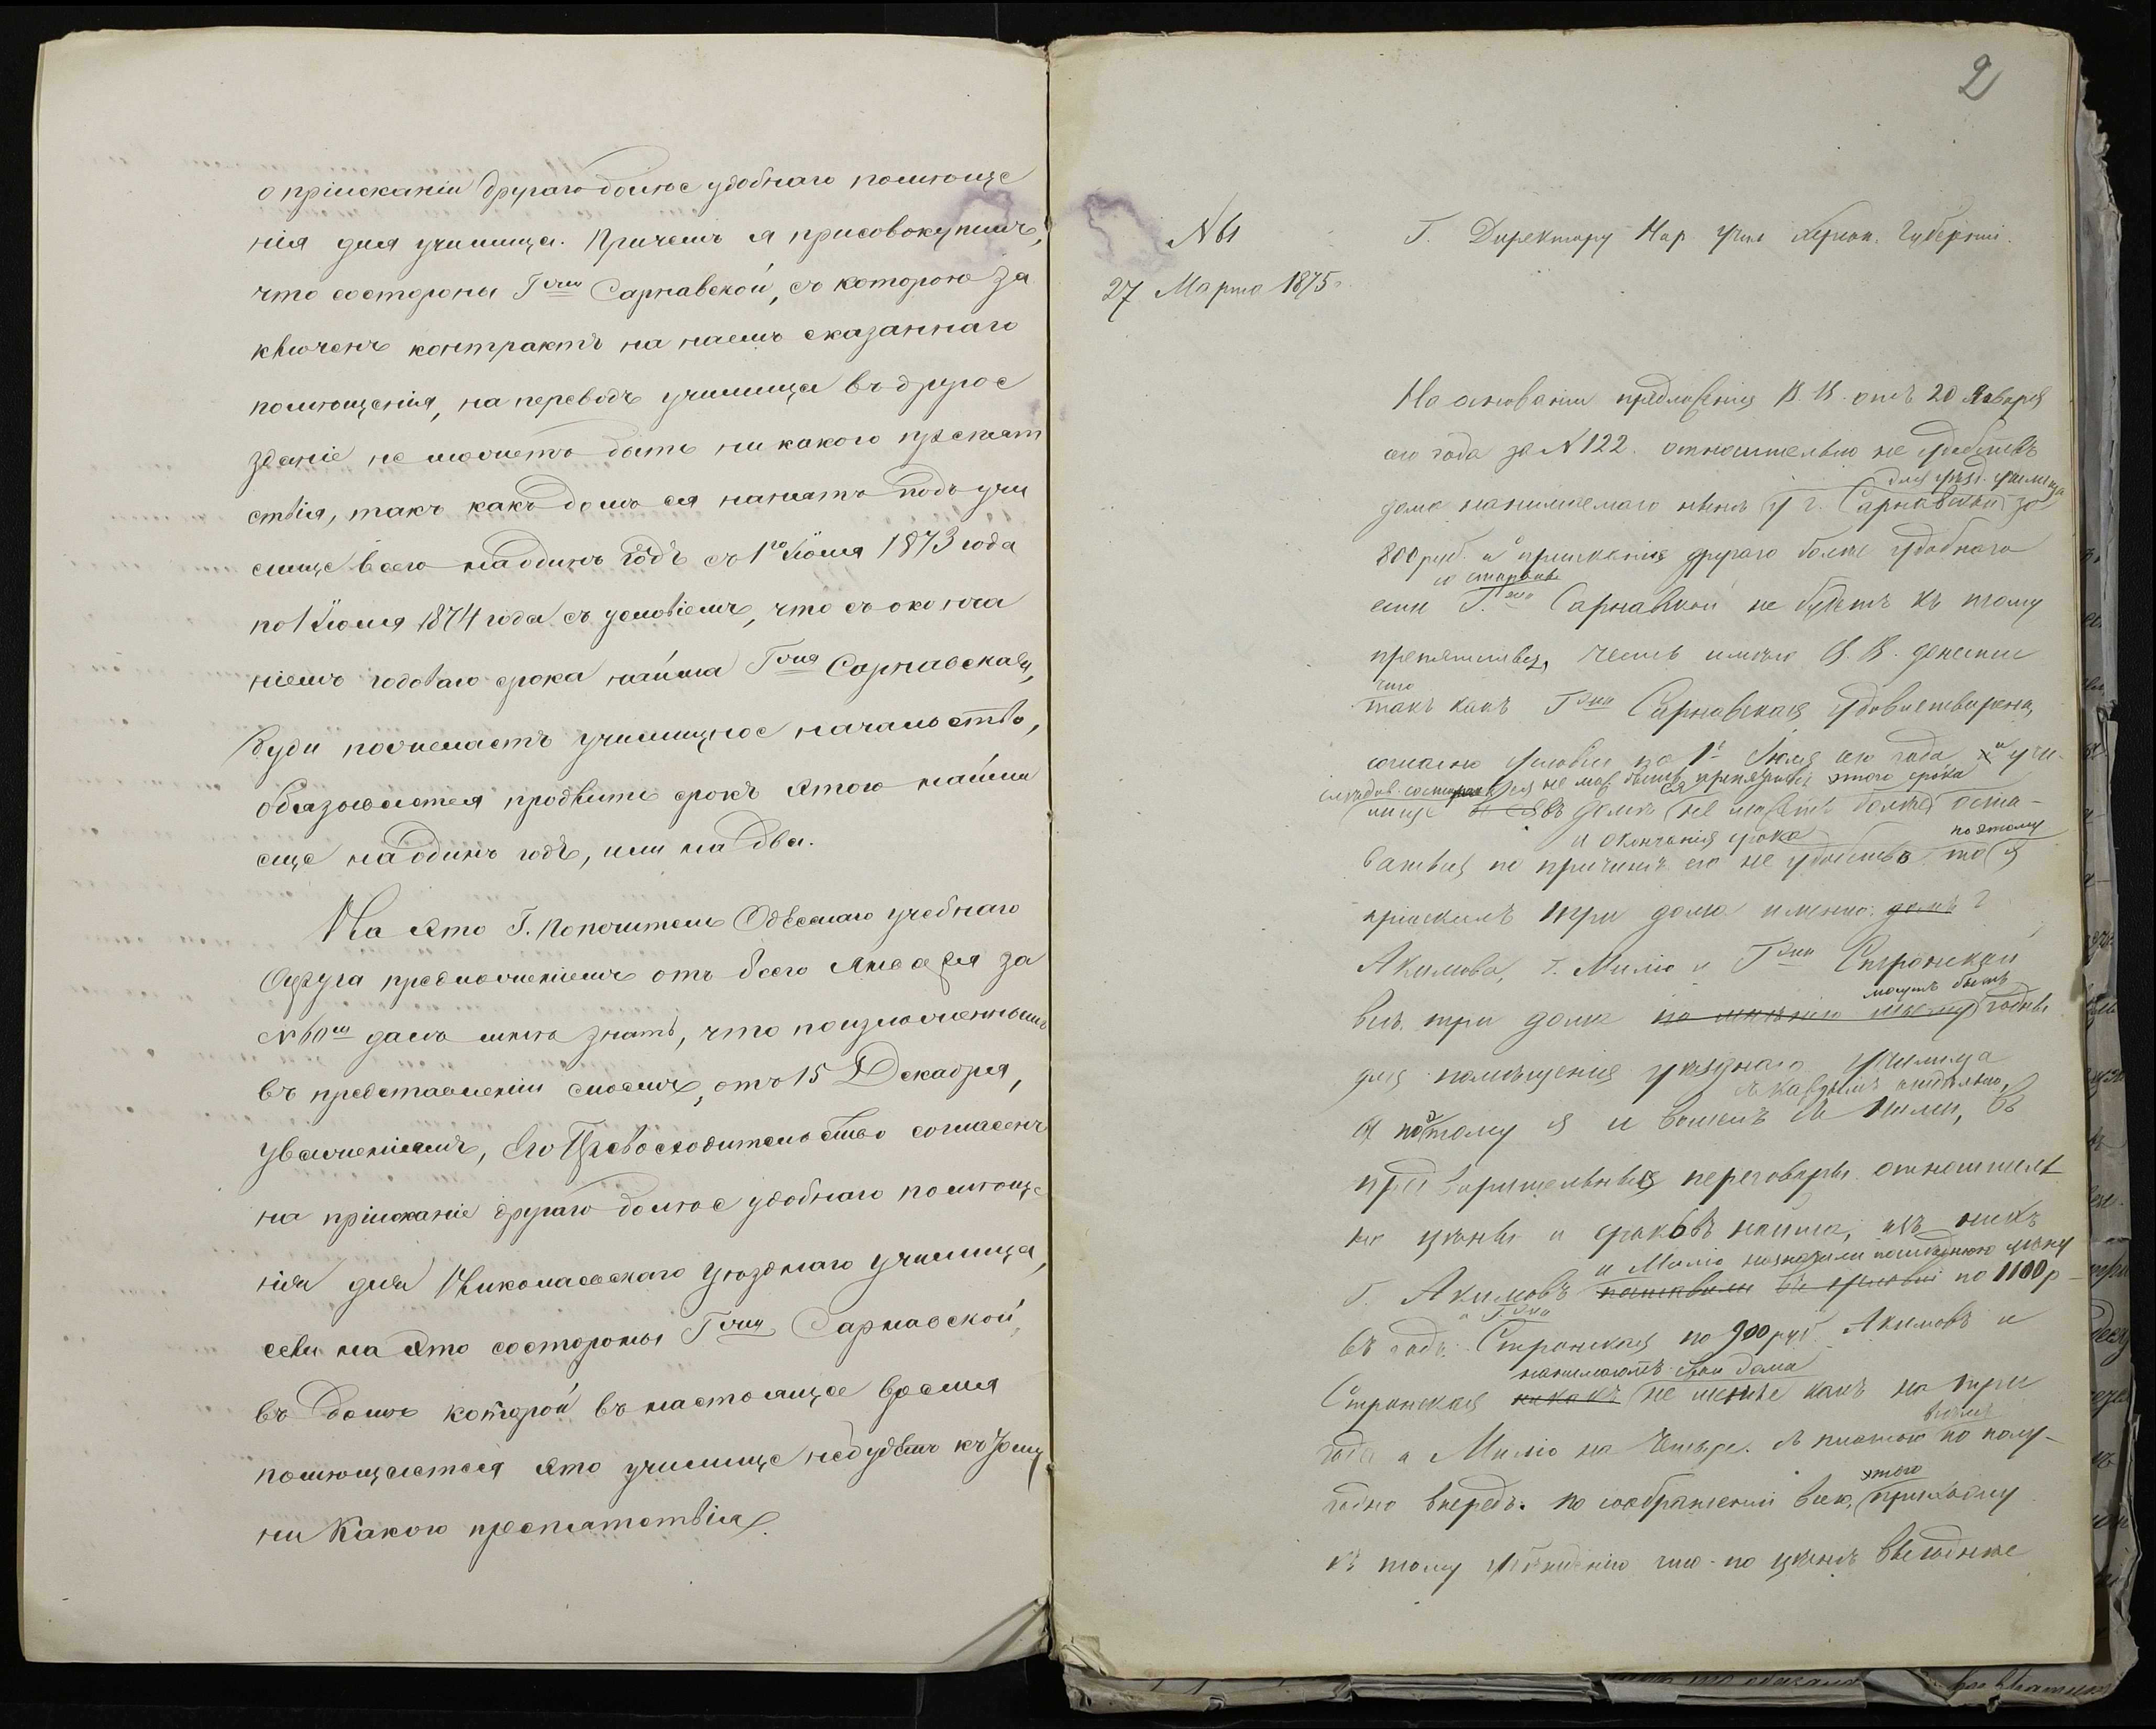 о пріисканіи другаго болѣе удобнаго помѣще
нія для училища. Причемъ я присовокупилъ,
что состороны Г-жи Сарнавской, съ которою за
ключенъ контрактъ на наемъ сказаннаго
помѣщенія, на переводъ училища въ другое
зданіе не можетъ быть ни какого препят
ствія, такъ какъ домъ ея нанятъ подъ учи
лище всего на одинъ годъ съ 1го Іюля 1873 года
по 1 Іюля 1874 года съ условіемъ, что съ оконча
ніемъ годоваго срока найма Г-жа Сарнавская,
буди пожелаетъ училищное начальство,
обязывается продлить срокъ этого найма
еще на одинъ годъ, или на два.
На это Г. Попечитель Одесскаго учебнаго
Округа предложеніемъ отъ 8го Января за
№ 60м далъ мнѣ знать, что по изложеннымъ
въ представленіи моемъ, отъ 15 Декабря,
уваженіямъ, Его Превосходительство согласенъ
на пріисканіе другаго болѣе удобнаго помѣще
нія для Николаевскаго уѣзднаго училища,
если на это состороны Г-жи Сарнавской,
въ домѣ которой въ настоящее время
помѣщается это училище небудетъ къ тому
ни какого препятствія.
2
№ 61
27 Марта 1875 г.
Г. Директору Нар. Учил. Херсон. Губерніи.
На основаніи предложенія В. В. отъ 20 Января
сего года за № 122. относительно не удобствъ
для уѣзд. училища
дома нанимаемаго нынѣ у г. Сарнавской за
800 руб. и пріисканія другаго болѣе удобнаго
со стороны
если Г-жи Сарнавской не будетъ къ тому
препятствія, честь имѣю В. В. донести
что
такъ какъ Г-жа Сарнавская удовлетворена
согласно условія по 1е Іюля сего года и учи-
этого срока
лище въ домѣ не можетъ болѣе оста-
и окончанія срока поэтому
ваться по причинѣ его не удобствъ то я
пріискалъ три дома именно: домъ г
Акимова, г. Милло и Г-жи Стронской
могутъ быть
всѣ три дома по мнѣнію моему годны
для помѣщенія уѣзднаго училища
съ каждымъ отдѣльно,
А потому я и вошелъ съ ними, въ
предварительные переговоры относитель
но цѣны и сроковъ найма, изъ нихъ
и Милло назначили послѣднюю цѣну
Г. Акимовъ по 1100 р
а Г-жа
въ годъ. Стронская по 900 руб. Акимовъ и
нанимаютъ свои дома
Стронская не менѣе какъ на три
года а Милло на четыре. съ платою по полу-
этого
годно впередъ. по соображеніи всего прихожу
къ тому убѣжденію что по цѣнѣ выгоднѣе